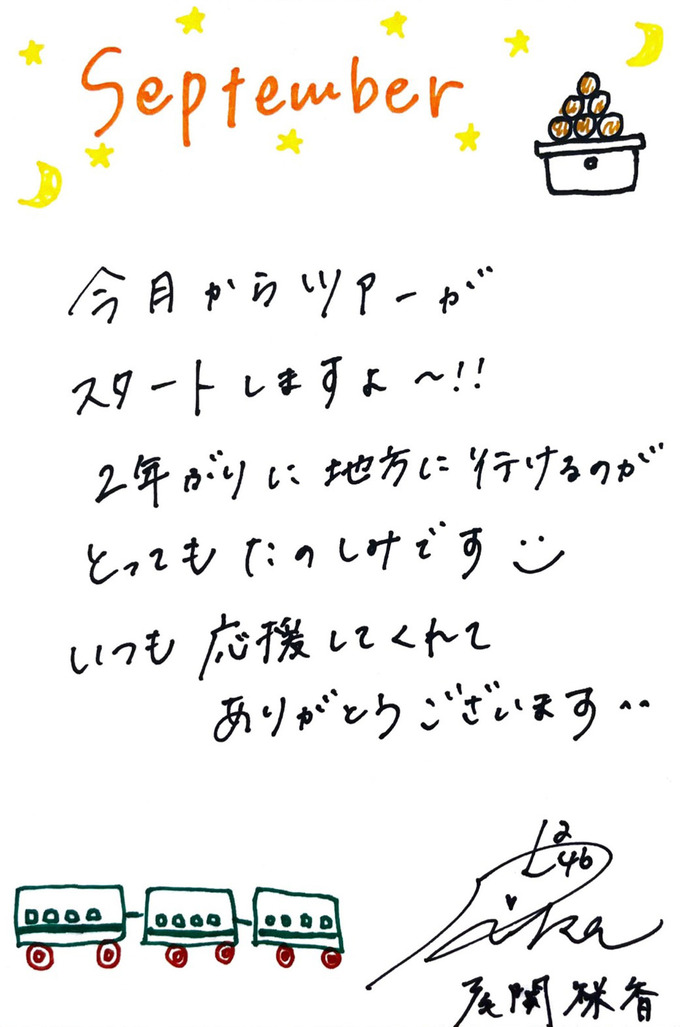 September
今月からツアーが
スタートしますよ〜!!
2年ぶりに地方に行けるのが
とってもたのしみです
いつも応援してくれて
ありがとうございます
46
Rika
尾関梨香